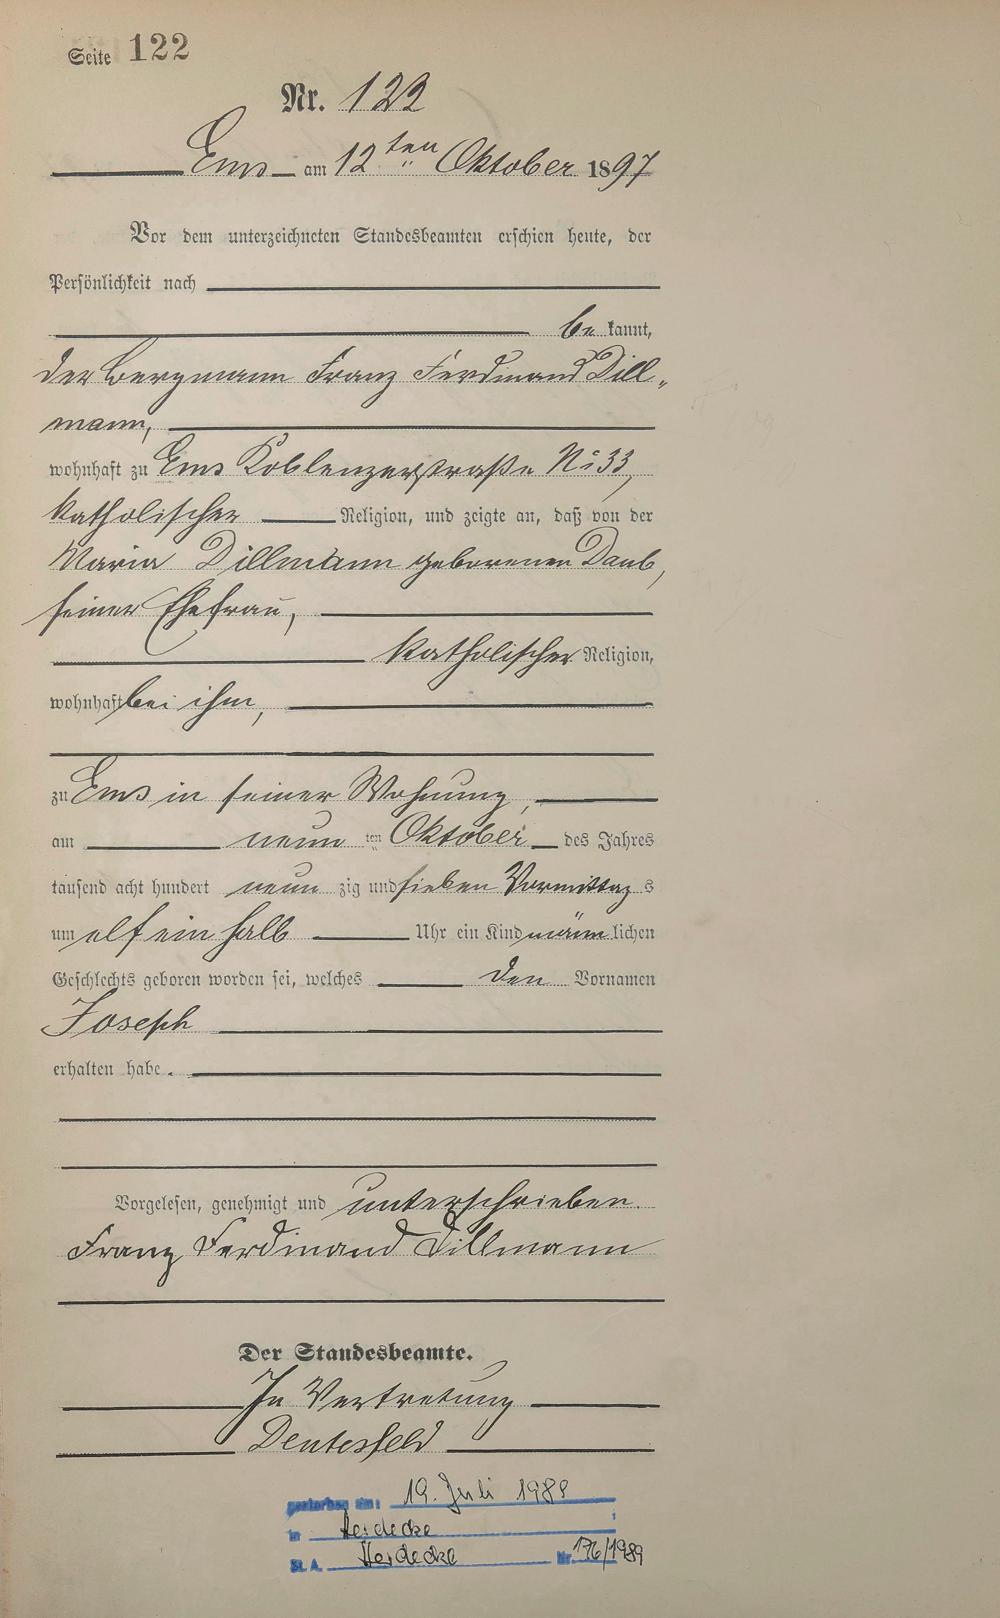 Seite 122
Nr. 122
Ems am 12ten Oktober 1897
Vor dem unterzeichneten Standesbeamten erschien heute, der
Persönlichkeit nach
be kannt,
der Bergmann Franz Ferdinand Dill-
mann,
wohnhaft zu Ems Koblenzerstraße No 33,
katholischer Religion, und zeigte an, daß von der
Maria Dillmann geborenen Daub,
seiner Ehefrau,
katholischer Religion,
wohnhaft bei ihm,
zu Ems in seiner Wohnung,
am neun ten Oktober des Jahres
tausend acht hundert neun zig und sieben Vormittag s
um elf ein halb Uhr ein Kind männ lichen
Geschlechts geboren worden sei, welches den Vornamen
Joseph
erhalten habe.
Vorgelesen, genehmigt und unterschrieben.
Franz Ferdinand Dillmann
Der Standesbeamte.
In Vertretung
gestorben am: 19. Juli 1989
in Herdecke
St. A. Herdecke Nr. 176/1989